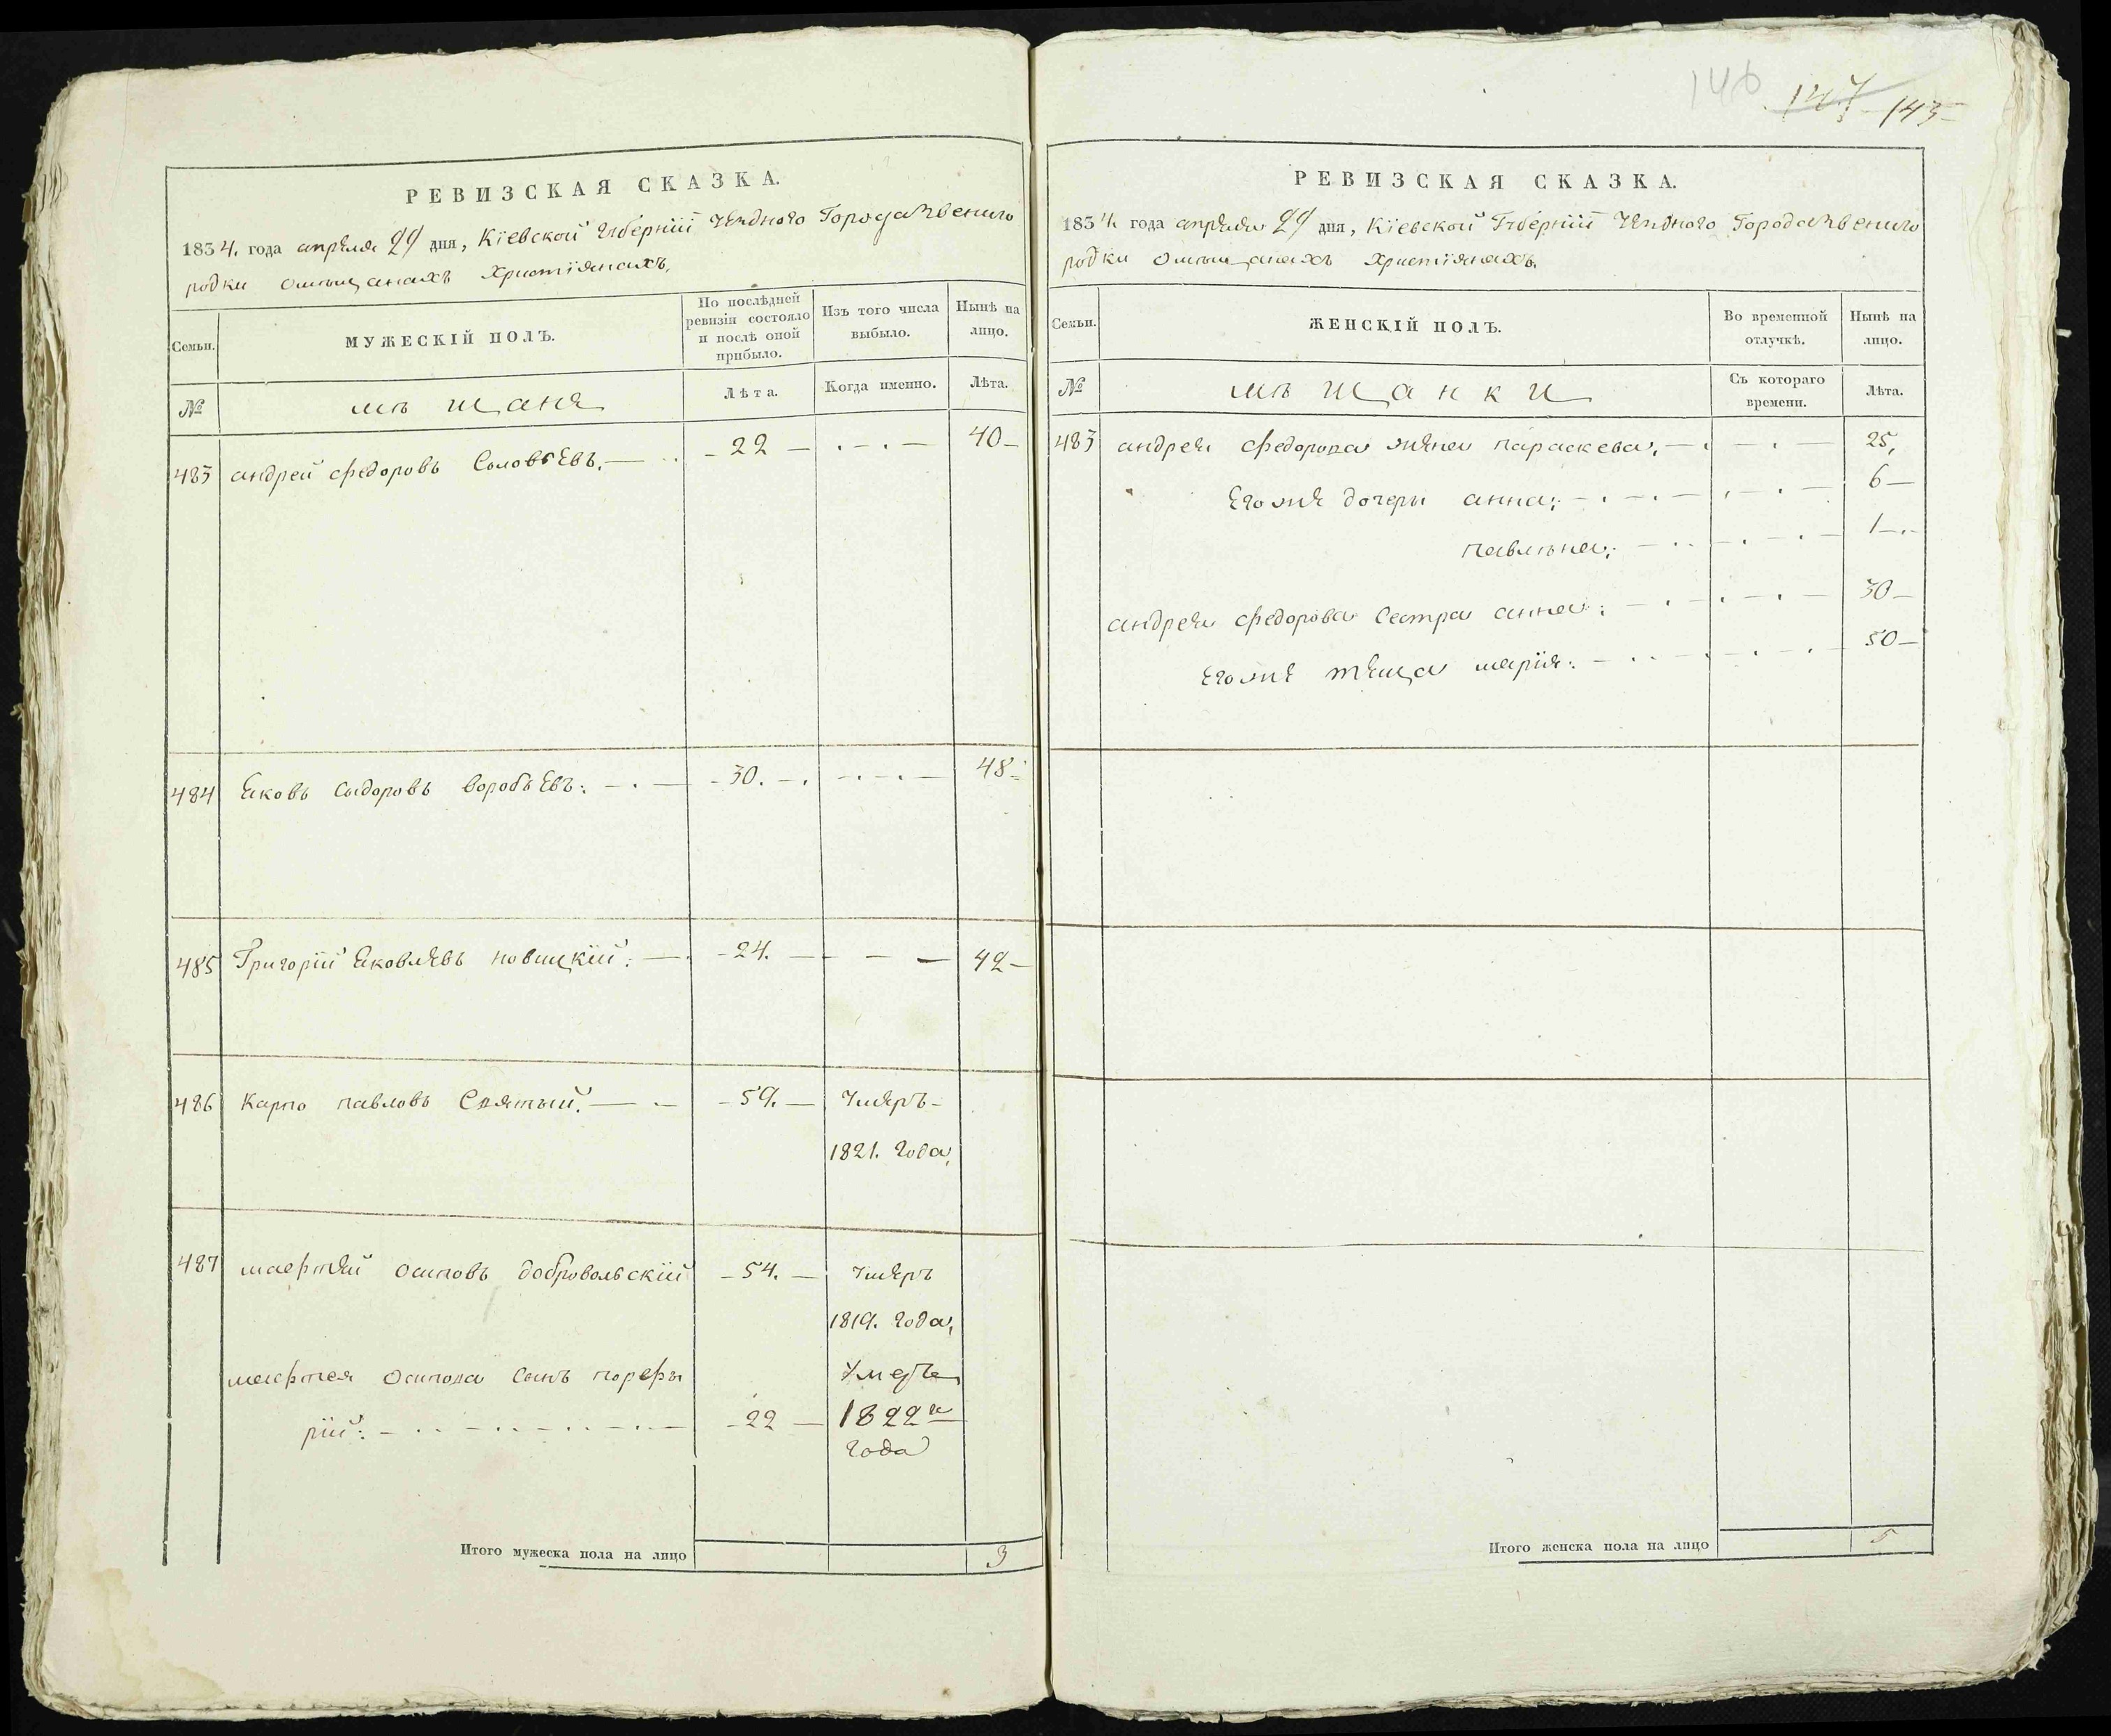 146 147 143
РЕВИЗСКАЯ СКАЗКА.
1834. года апрѣля 29 дня, Кіевской Губерніи Уѣзднаго Города Звениго
родки омѣщанахъ христіянахъ,
Семьи.
МУЖЕСКІЙ ПОЛЪ.
По послѣдней ревизіи состояло и послѣ оной прибыло.
Изъ того числа выбыло.
Нынѣ на лицо.
№
мѣщанѣ
Лѣта.
Когда именно.
Лѣта.
483 андрей федоровъ Соловьевъ. 22 40
484 Яковъ Сыдоровъ воробьевъ: 30. 48
485 Григорій Яковлѣвъ новицкій: 24. 42
486 Карпо павловъ Святый: 59. Умѣръ
1821. года,
487 марѳтѣй осиповъ добровольскій 54. Умѣръ
1819. года,
осипова сынъ порфи Умеръ
рій: 22 1822го
года
Итого мужеска пола на лицо 3
РЕВИЗСКАЯ СКАЗКА.
1834. года апрѣля 29 дня, Кіевской Губерніи Уѣзднаго Города Звениго
родки омѣщанахъ христіянахъ.
Семьи.
ЖЕНСКІЙ ПОЛЪ.
Во временной отлучкѣ.
Нынѣ на лицо.
№
мѣщанки
Съ котораго времени.
Лѣта.
483 андрея федорова жѣна параскева, 25,
Егожѣ дочери анна; 6
павлѣна; 1
андрея федорова сестра анна: 30
егожѣ тѣща марія: 50
Итого женска пола на лицо 5